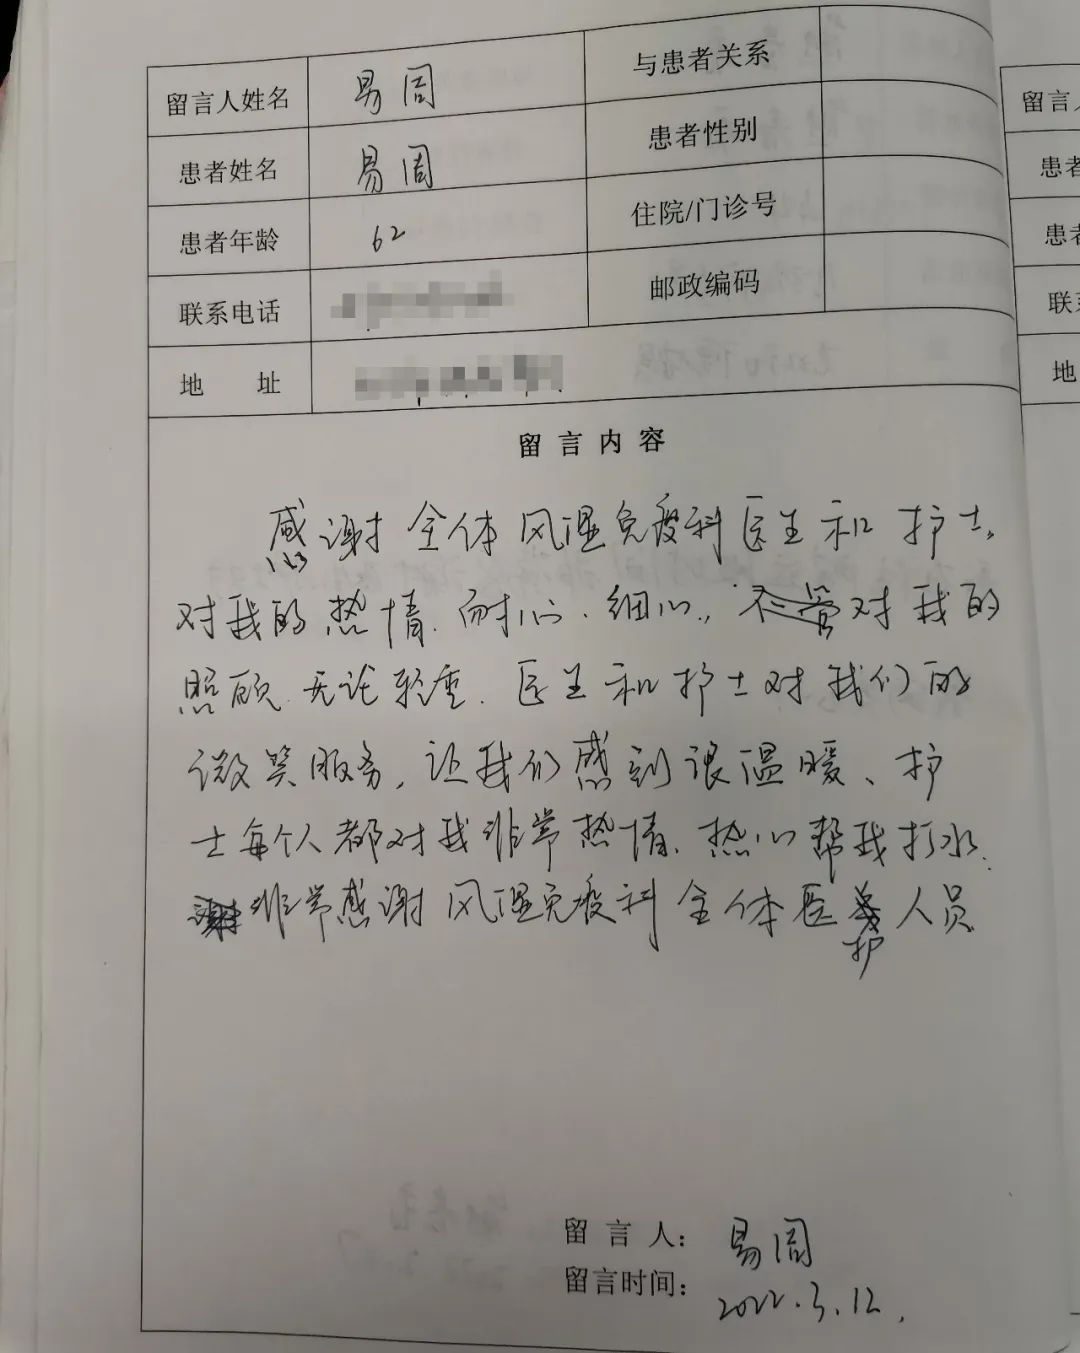 留言人姓名 易周 与患者关系
患者姓名 易周 患者性别
患者年龄 62 住院/门诊号
联系电话 邮政编码
地 址
留言内容
感谢全体风湿免疫科医生和护士,
对我的热情、耐心、细心,对我的
照顾无论轻重、医生和护士对我们的
微笑服务,让我们感到很温暖、护
士每个人都对我非常热情、热心帮我打水.
非常感谢风湿免疫科全体医护人员
留 言 人: 易周
留言时间: 2022.3.12.
留言
患者
患者
联系
地